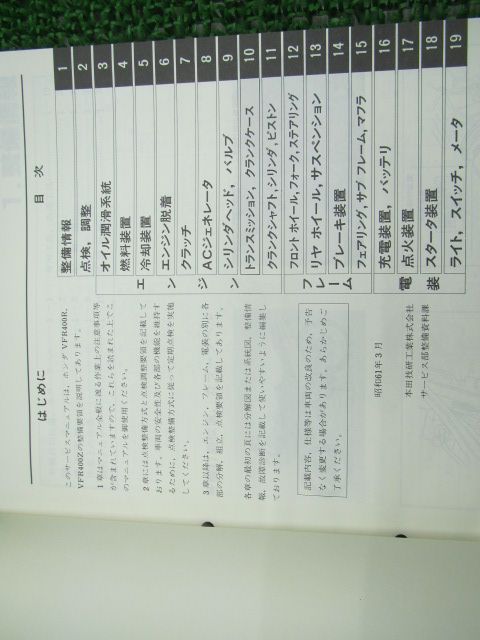 はじめに
このサービスマニュアルは、ホンダ VFR400R,
VFR400Zの整備要領を説明してあります。
1章はマニュアル全般に渡る作業上の注意事項等
が含まれていますので、これらを読まれた上でこ
のマニュアルを御使用ください。
2章には点検整備方式と点検調整要領を記載して
おります。車両の安全性及び各部の機能を維持す
るために、点検整備方式に従って定期点検を実施
してください。
3章以降は、エンジン、フレーム、電装の別に各
部の分解、組立、点検要領を記載してあります。
各章の最初の頁には分解図または系統図、整備情
報、故障診断を記載して使いやすいように編集し
ております。
記載内容、仕様等は車両の改良のため、予告
なく変更する場合があります。あらかじめご
了承ください。
昭和61年3月
本田技研工業株式会社
サービス部整備資料課
目 次
整備情報 1
点検，調整 2
エンジン
オイル潤滑系統 3
燃料装置 4
冷却装置 5
エンジン脱着 6
クラッチ 7
ACジェネレータ 8
シリンダヘッド，バルブ 9
トランスミッション，クランクケース 10
クランクシャフト，シリンダ，ピストン 11
フレーム
フロントホイール，フォーク，ステアリング 12
リヤ ホイール，サスペンション 13
ブレーキ装置 14
フェアリング，サブ フレーム，マフラ 15
電装
充電装置，バッテリ 16
点火装置 17
スタータ装置 18
ライト，スイッチ，メータ 19